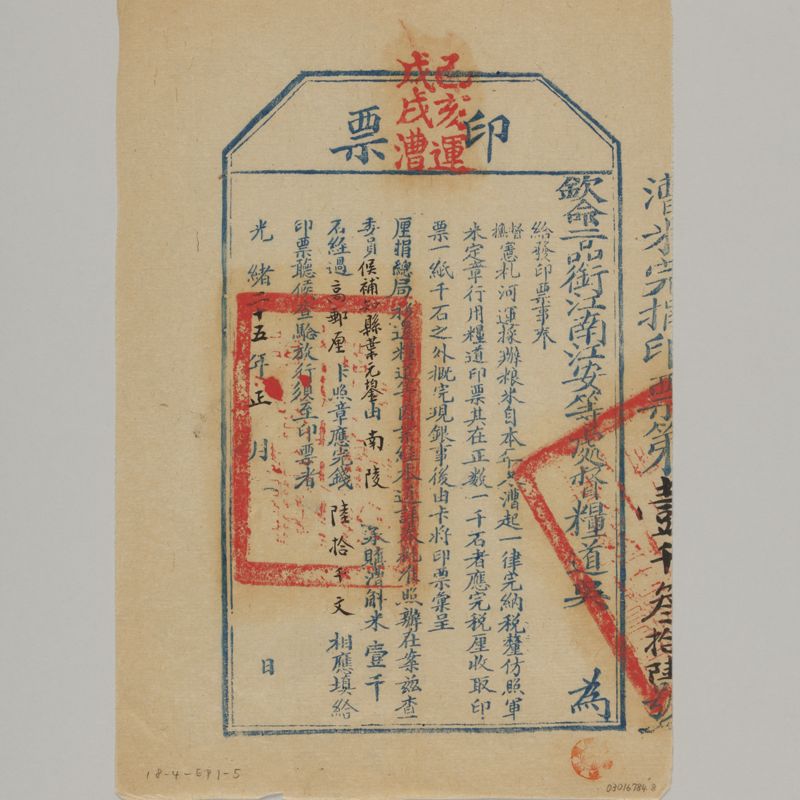 漕米完捐印票第壹千叁拾陸號
印票
己亥運
戊戌漕
欽命二品銜江南江安等處督糧道吳 為
給發印票事奉
督撫憲札河運採辦粮米自本年冬漕起一律完納稅釐仿照軍
米定章行用糧道印票其在正數一千石者應完稅厘收取印
票一紙千石之外概完現銀事後由卡將印票彙呈
厘捐總局 照辦在案茲查
委員候補知縣葉元 由南陵 採購漕斛米壹千
石經過高郵厘卡照章應完錢陸拾千文相應填給
印票聽候查驗放行須至印票者
光緒二十五年正月 日
18-4-E91-5
03016784 8